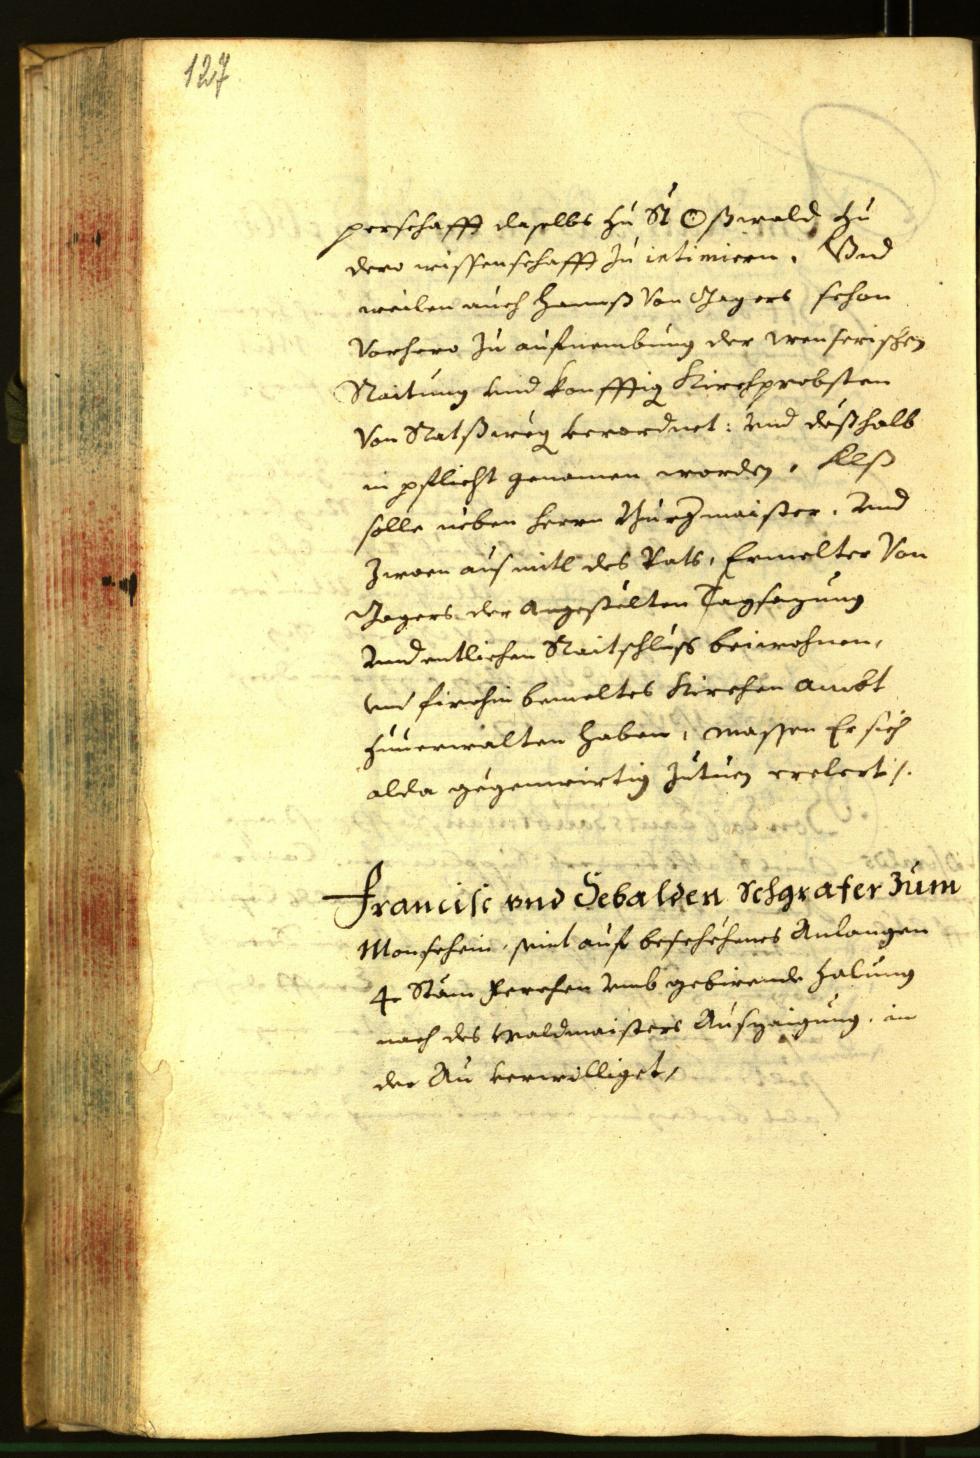 127
perschafft daselbs zu St Oßwald zu
dero wissenschafft zu intimiern. Und
weilen auch Hannß Von Jagers schon
Vorhero zu aufnembung der
Raitung und konfftig Kirchprobsten
Von Ratßweg verordnet: und deßhalb
in pflicht genomen worden. Alß
solle neben herrn Burgmaister. und
Zween auß mitl des Rats, Ermelter Von
Jagers der Angestelten Tagsazung
und entlichen Raitschluss beiwohnen,
und firohin bemeltes Kirchen Ambt
zuuerwalten haben, massen Er sich
alda gegenwirtig zutuen

Francisc und Sebalden Schgrafer zum
Monschein, wird auf beschehenes Anlangen
4 Stäm umb gebirende Zalung
nach des Waldmaisters Auszaigung. in
der Au verwilliget,